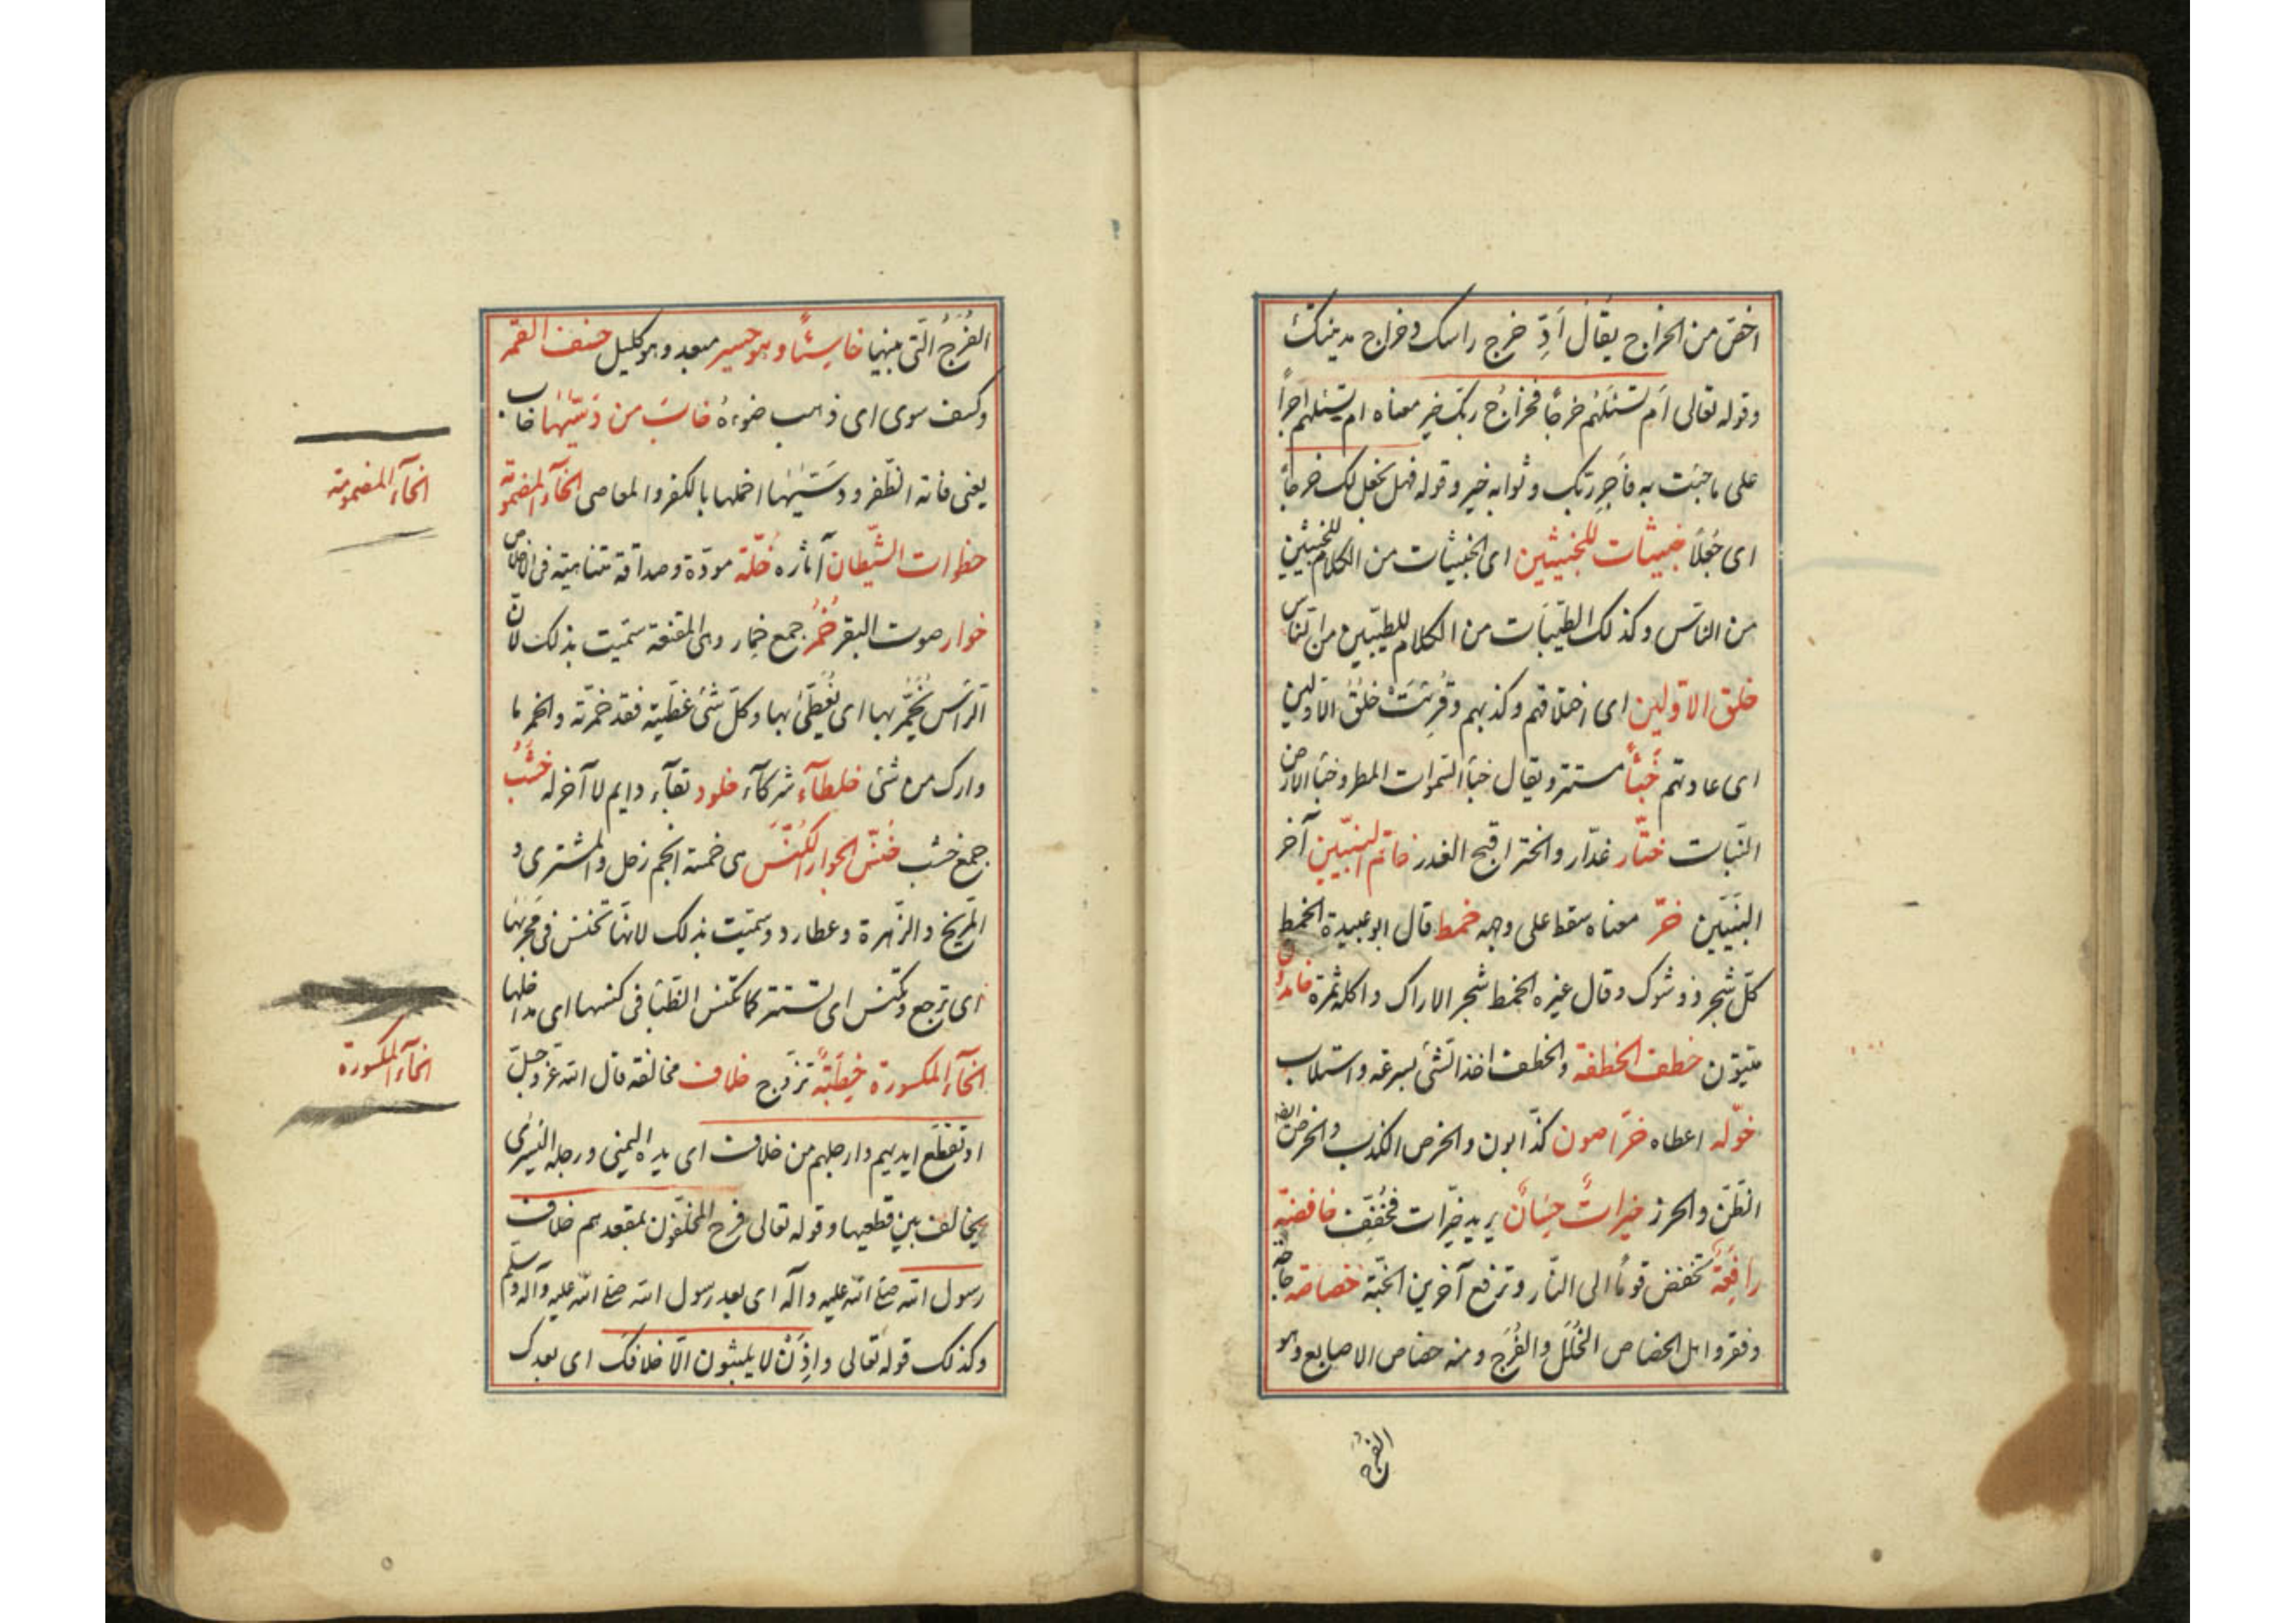 اخصّ من الخراج يقال ادِّ خرج راسك و خراج مدينتك
وقوله تعالى اَم تسئلهُم خرجًا فخراجُ ربّك خير معناه ام تسئلهم اجراً
على ما جئت به فاَجر ربّك وثوابه خير وقوله فهل نجعل لك خرجاً
اى جُعلًا خبيثات للخبيثين اى الخبيثات من الكلام للخبيثين
من الناس وكذلك الطّيّبات من الكلام للطيّبين من النّاس
خلق الاوّلين اى اختلاقهم وكذبهم وقُرِئَتْ خلُقُ الاوّلين
اى عادتهم خَبْأً مستتر ويقال خبأ السّموات المطر وخبأ الارض
النّبات ختّار غدّار والختر اقبح الغدر خاتم النّبيّين آخر
النّبيّين خَرَّ معناه سقط على وجهه خمط قال ابو عبيدة الخمط
كلّ شجر ذو شوك وقال غيره الخمط شجر الاراك واكله ثمرة خامدون
ميّتون خطف الخطفة والخطف اخذ الشّئ بسرعه واستلاب
خوّله اعطاه خرّاصون كذّابون والخرص الكذب والخرص ايضا
الظّنّ والحرز خيراتٌ حِسَانٌ يريد خيّرات فخُفِّف خافضة
رافِعَةٌ تخفض قومًا الى النّار وترفع آخرين الجنّة خصاصة حاجة
وفقر واصل الخصاص الخُلَل والفُرَج ومنه خصاص الاصابع وهو
الفُرَج
الفُرَجُ الّتى بينها خاسِئًا وهو حسير مبعد وهو كليل خسف القمر
وكسف سوى اى ذهب ضوءهُ خابَ من دَسّيٰهٰا خاب
يعنى فاته الظّفر ودسَّيٰهٰا اخملها بالكفر والمعاصى الخآء المضمومة
خطوات الشّيطان آثاره خُلّة مودّة وصداقة متناهيّة فى الاخلاص
خوار صوت البقر خُمُر جمع خِمار وهى المقنعة سمّيت بذلك لانّ
الرّأس يُخمَّر بها اى يُغطّىٰ بها وكلّ شئ غطّيته فقد خمّرته والخمر ما
وارك من شئ خلطآء شركآء خلود بقآء دايم لا آخر له خُشُبٌ
جمع خشب خُنّس الجوار الكُنّس هى خمسة انجم زحل والمشترى و
المرّيخ والزّهرة وعطارد وسمّيت بذلك لانّها تخنس فى مجريها
اى ترجع وتكنس اى تستتر كما تكنس الظّبا فى كنسها اى مداخلها
الخآء المكسورة خِطْبَةً تزوّج خلاف مخالفة قال الله عزّ وجلّ
او تقطّع ايديهم وارجلهم من خلاف اى يده اليمنى ورجله اليُسرىٰ
يخالف بين قطعيها وقوله تعالى فرح المخلّفون بمقعدهم خلاف
رسول الله صلّى الله عليه وآله اى بعد رسول الله صلّى الله عليه وآله وسلّم
وكذلك قوله تعالى واِذَنْ لا يلبثون الّا خلافك اى بعدك
الخآء المضمومة
الخآء المكسورة